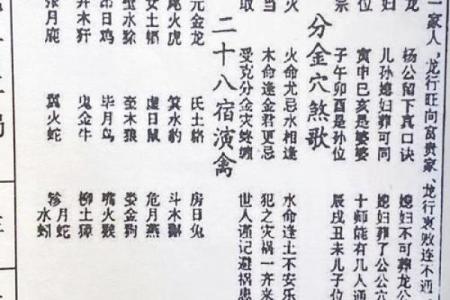 一家人，龙行旺向富贵家、龙行衰败连不通
龙 杨公留下真口诀 媳妇不可葬龙公
位 儿孙媳妇葬可同 媳妇葬了公公穴
寅申巳亥是婆婆 十师能有几人通
宗 子午卯酉是孙位 辰戌丑未儿子位
分金穴煞歌
火命尤忌水相逢 水命逢土不安乐
当 木命逢金君更忌 犯之灾祸一齐来
取 受克分金灾终缠 世人谨记避祸患
二十八宿演禽
元金龙 氐土貉 房日兔
尾火虎 箕水豹 斗木獬
女土蝠 虚日鼠 危月燕
壁水貐 奎木狼 娄金狗
昴日鸡 毕月乌 嘴火猴
井木犴 鬼金牛 柳土獐
张月鹿 翼火蛇 轸月蛇水蚓